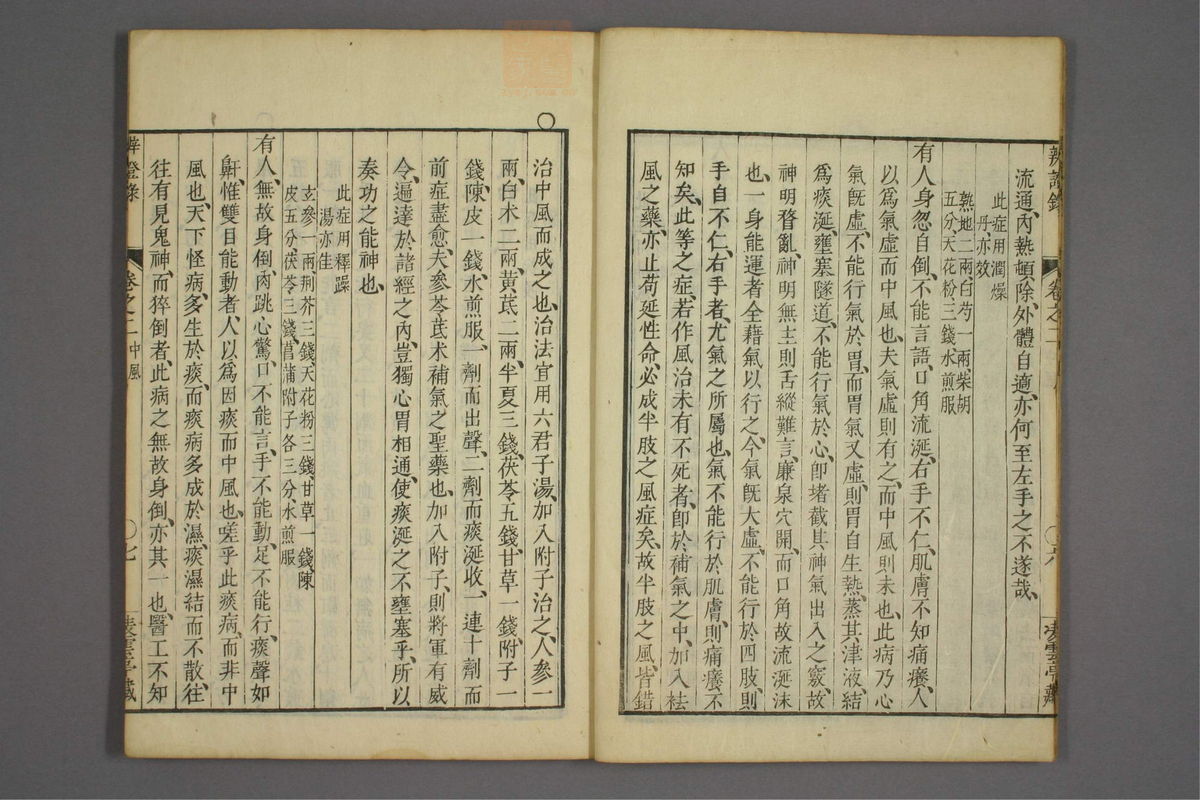 流通、內熱頓除、外體自適、亦何至左手之不遂哉、
此症用潤燥丹、亦效
熟地二兩白芍一兩、柴胡五分、天花粉三錢水煎服
有人身忽自倒、不能言語、口角流涎、右手不仁、肌膚不知痛癢、人
以爲氣虛而中風也、夫氣虛則有之、而中風則未也、此病乃心
氣旣虛、不能行氣於胃、而胃氣又虛、則胃自生熱、蒸其津液、結
爲痰涎、壅塞隧道、不能行氣於心、卽堵截其神氣出入之竅、故
神明瞀亂、神明無主則舌縱難言、廉泉穴開、而口角故流涎沫
也、一身能運者全藉氣以行之、今氣旣大虛、不能行於四肢、則
手自不仁、右手者、尤氣之所屬也、氣不能行於肌膚、則痛癢不
知矣、此等之症、若作風治未有不死者、卽於補氣之中、加入祛
風之藥、亦止苟延性命、必成半肢之風症矣、故半肢之風、皆錯
辨證錄
卷之二
凌雲亭藏
治中風而成之也、治法宜用六君子湯、加入附子治之、人參一
兩、白术二兩、黃芪二兩、半夏三錢、茯苓五錢、甘草一錢、附子一
錢、陳皮一錢、水煎服、一劑而出聲、二劑而痰涎收、一連十劑而
前症盡愈、夫參苓芪术補氣之聖藥也、加入附子、則將軍有威
令、遍達於諸經之內、豈獨心胃相通、使痰涎之不壅塞乎、所以
奏功之能神也、
此症用釋躁湯亦佳
玄參一兩、荆芥三錢、天花粉三錢、甘草一錢、陳皮五分、茯苓三錢、菖蒲附子各三分、水煎服
有人無故身倒、肉跳心驚、口不能言、手不能動、足不能行、痰聲如
鼾、惟雙目能動者、人以爲因痰而中風也、嗟乎此痰病、而非中
風也、天下怪病、多生於痰、而痰病多成於濕、痰濕結而不散、往
往有見鬼神、而猝倒者、此病之無故身倒、亦其一也、醫工不知
辨證錄
卷之二中風
七
凌雲亭藏